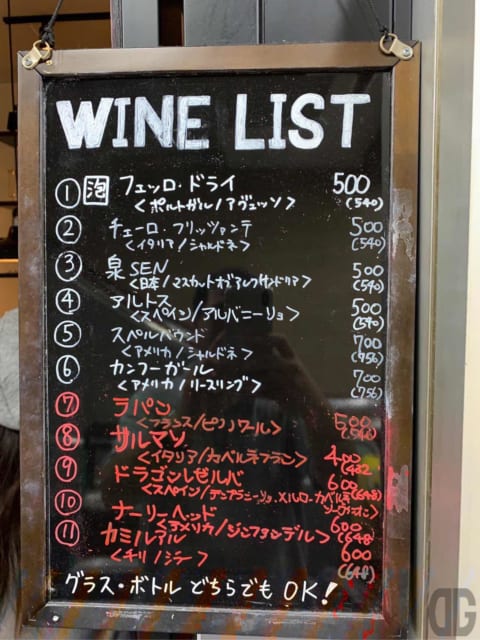 WINE LIST
① 泡 フェッロ・ドライ 500
<ポルトガル/アヴェッソ> (540)
② チェーロ・フリッツァンテ 500
<イタリア/シャルドネ> (540)
③ 泉SEN 500
<日本/マスカットオブアレクサンドリア> (540)
④ アルトス 500
<スペイン/アルバニーリョ> (540)
⑤ スペルバウンド 700
<アメリカ/シャルドネ> (756)
⑥ カンフーガール 700
<アメリカ/リースリング> (756)
⑦ ラパン 500
<フランス/ピノノワール> (540)
⑧ サルマソ 400
<イタリア/カベルネフラン> (432
⑨ ドラゴンレゼルバ 600
<スペイン/テンプラニーリョ.メルロー.カベルネ (648)
ソーヴィニオン>
⑩ ナーリーヘッド 600
<アメリカ/ジンファンデル> (648
⑪ カミルアル 600
<チリ/シラー> (648)
グラス・ボトル どちらでも OK!
DG